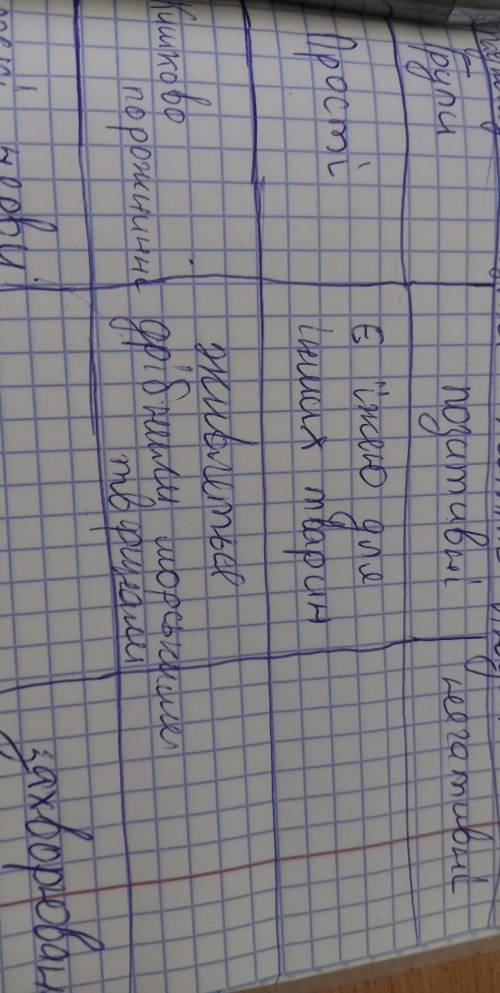 Групи
позитивні
негативні
Прості
є їжею для
інших тварин
Кишково
порожнинне
живляться
дрібними морськими
тваринами
черви
захворюван